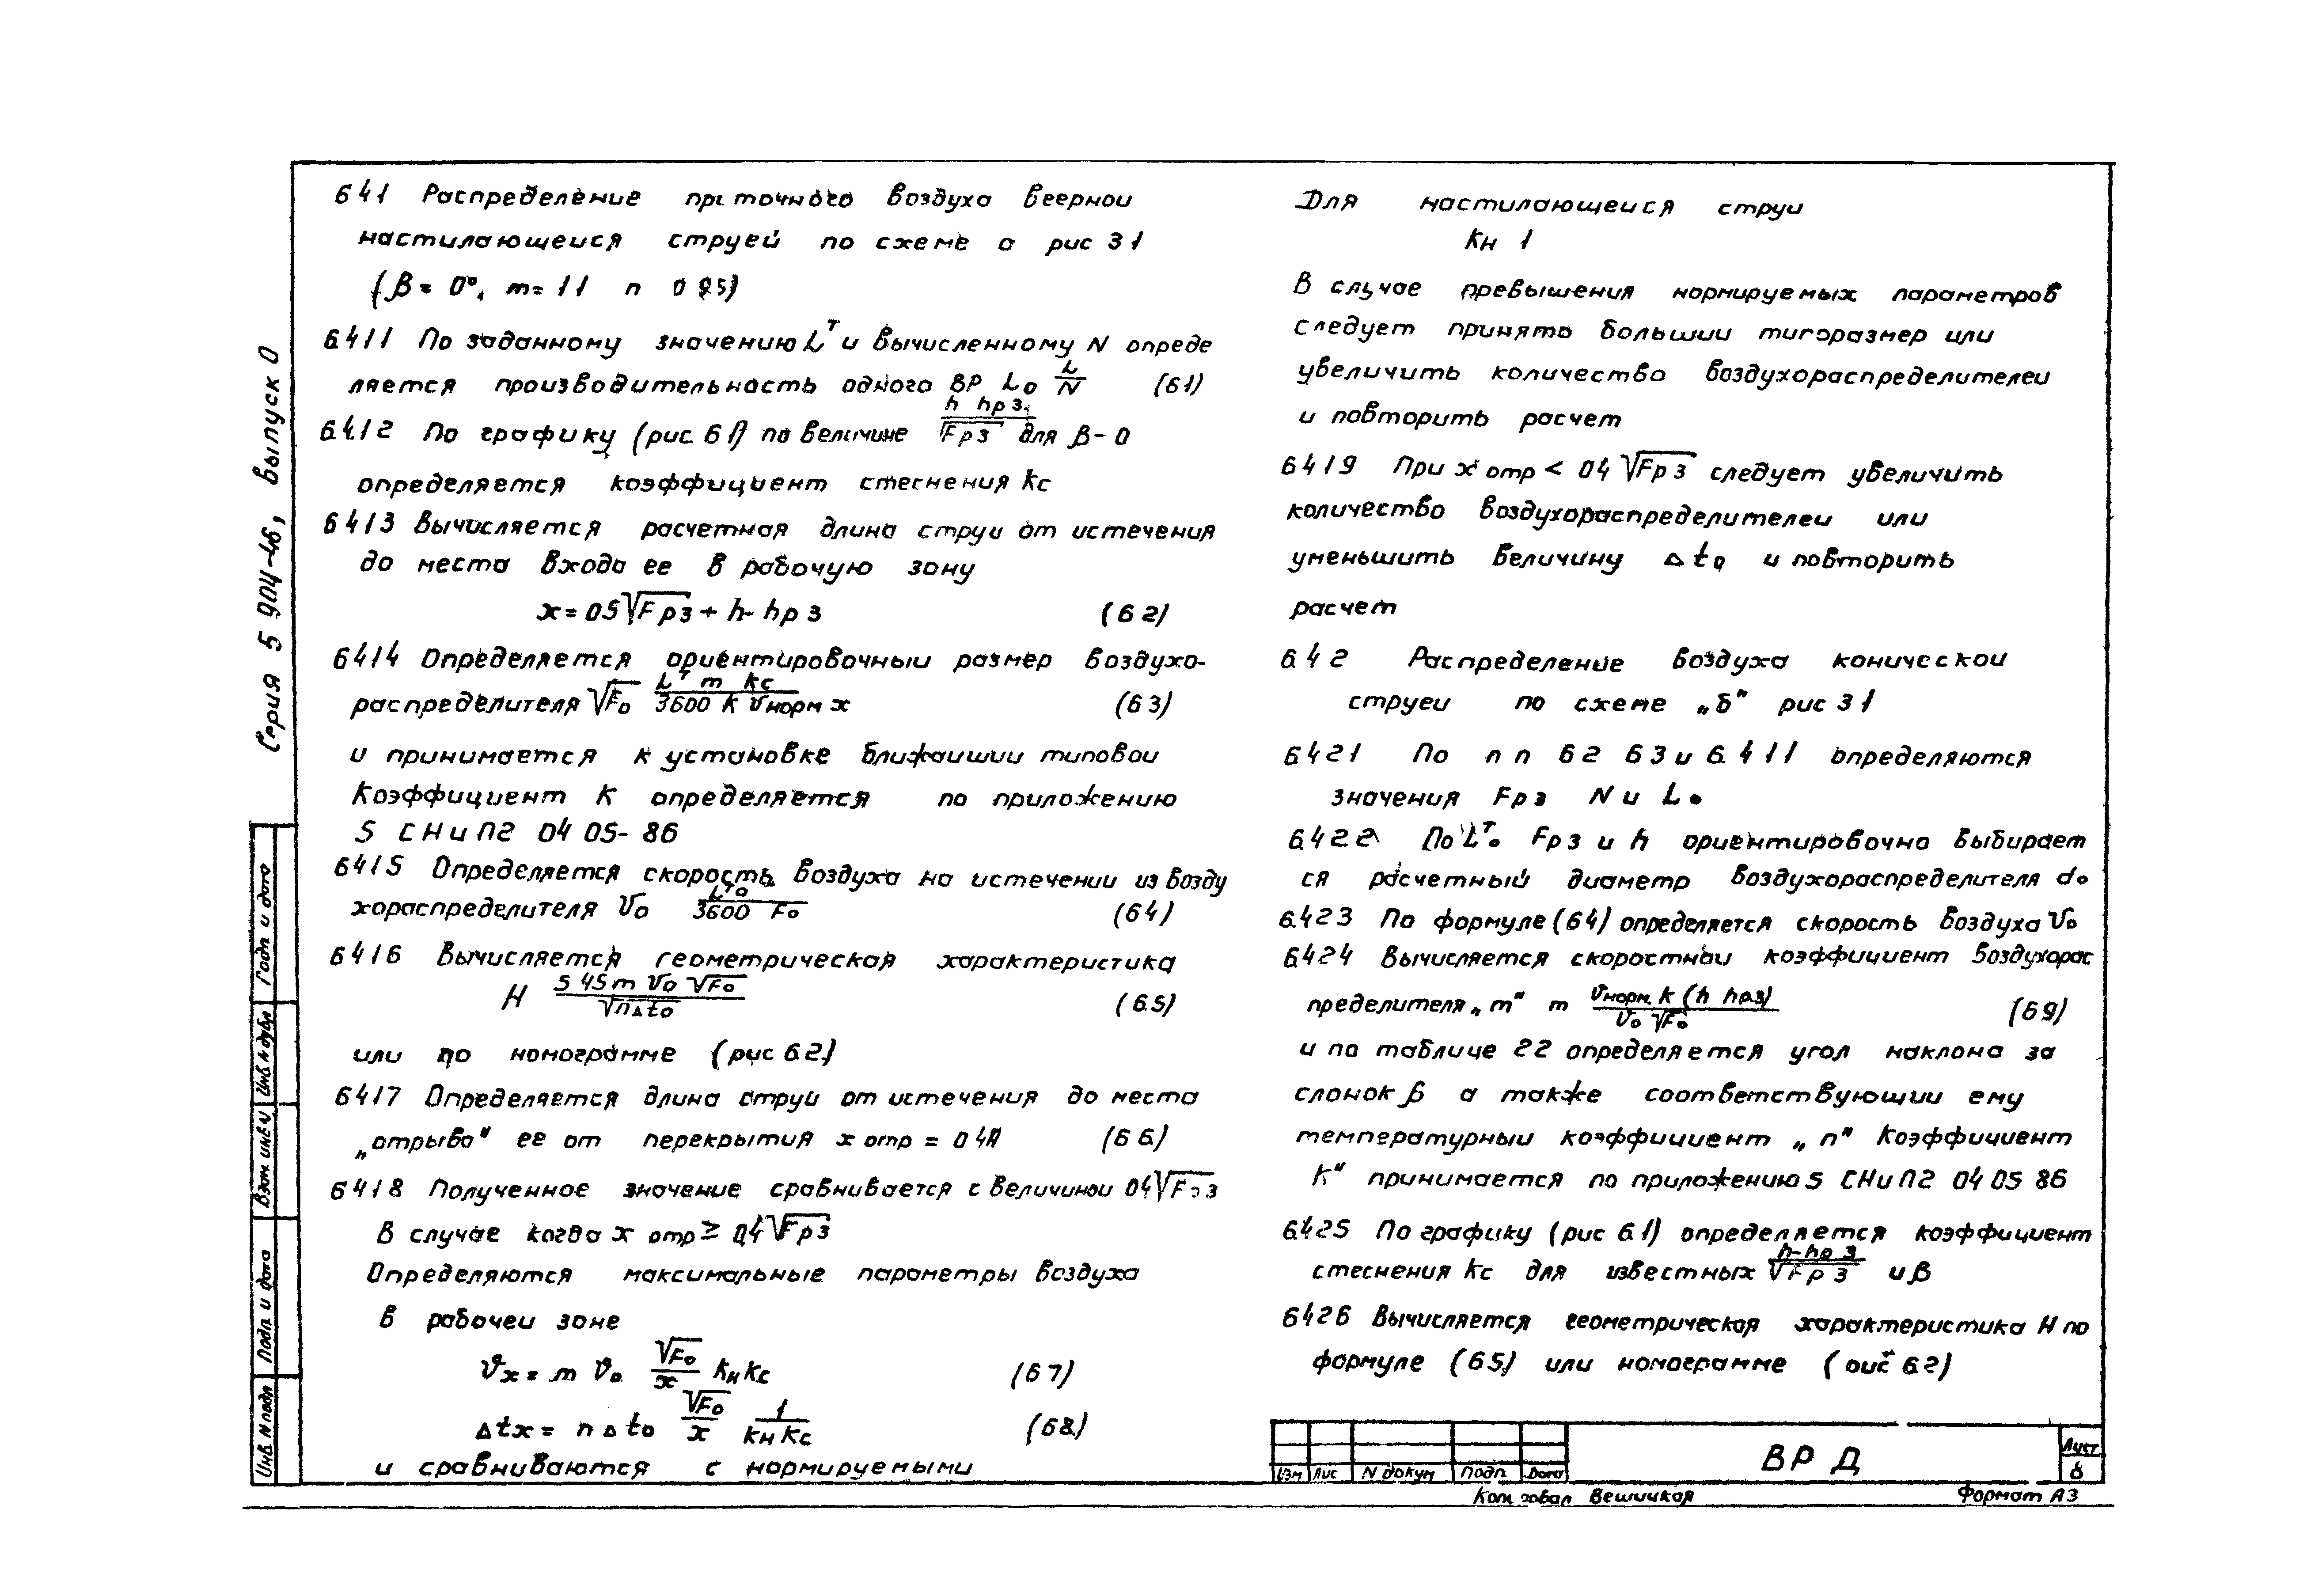 6 4 1 Распределение приточного воздуха веернои
настилающеися струей по схеме а рис 3 1
(β = 0°, m = 1 1 n 0 95)
6.4 1 1 По заданному значению L^T и вычисленному N опреде
ляется производительность одного ВР L₀ L/N (6 1)
6.4.1 2 По графику (рис. 6 1) по величине h hр з./√Fр з для β - 0
определяется коэффициент стеснения kс
6 4 1 3 Вычисляется расчетная длина струи от истечения
до места входа ее в рабочую зону
x = 0 5 √Fр з + h - hр з (6 2)
6 4 1 4 Определяется ориентировочныи размер воздухо-
распределителя √F₀ L^T m kс/3600 k υнорм x (6 3)
и принимается к установке ближаишии типовои
Коэффициент К определяется по приложению
5 СНиП2 04 05- 86
6 4 1 5 Определяется скорость воздуха на истечении из возду
хораспределителя υ₀ L^T₀/3600 F₀ (6 4)
6 4 1 6 Вычисляется геометрическая характеристика
H 5 45 m υ₀ √F₀/√n Δt₀ (6.5)
или по номограмме (рис 6.2.)
6 4 1 7 Определяется длина струи от истечения до места
„отрыва" ее от перекрытия x отр = 0 4H (6 6.)
6 4 1 8 Полученное значение сравнивается с величинои 0 4√Fр з
В случае когда x отр ≥ 0,4 √Fр з
Определяются максимальные параметры воздуха
в рабочеи зоне
υx = m υ₀ √F₀/x kн kс (6 7)
Δtx = n Δt₀ √F₀/x 1/kн kс (6 8.)
и сравниваются с нормируемыми
Для настилающеися струи
kн 1
В случае превышения нормируемых параметров
следует принять большии типоразмер или
увеличить количество воздухораспределителеи
и повторить расчет
6 4 1 9 При x отр < 0 4 √Fр з следует увеличить
количество воздухораспределителеи или
уменьшить величину Δ t₀ и повторить
расчет
6.4 2 Распределение воздуха коническои
струеи по схеме „б" рис 3 1
6.4 2 1 По п п 6 2 6 3 и 6. 4 1 1 определяются
значения Fр з N и L₀
6.4 2 2 По L^T₀ Fр з и h ориентировочно выбирает
ся расчетный диаметр воздухораспределителя d₀
6.4 2 3 По формуле (6 4) определяется скорость воздуха υ₀
6.4 2 4 Вычисляется скоростнои коэффициент воздухорас
пределителя „m" m υнорм. k (h hр.з)/υ₀ √F₀ (6 9)
и по таблице 2 2 определяется угол наклона за
слонок β а также соответствующии ему
температурныи коэффициент „n" Коэффициент
К" принимается по приложению 5 СНиП2 04 05 86
6.4 2 5 По графику (рис 6.1) определяется коэффициент
стеснения kс для известных h-hр з/√Fр з и β
6.4 2 6 Вычисляется геометрическая характеристика H по
формуле (6 5) или номограмме (рис 6.2)
Серия 5 904-46, выпуск 0
Подп и дата
Инв N дубл
Взам инв N
Подп и дата
Инв. N подл
Изм Лис N докум Подп Дата
ВР Д
Лист
8
Копировал Вешицкая Формат А3